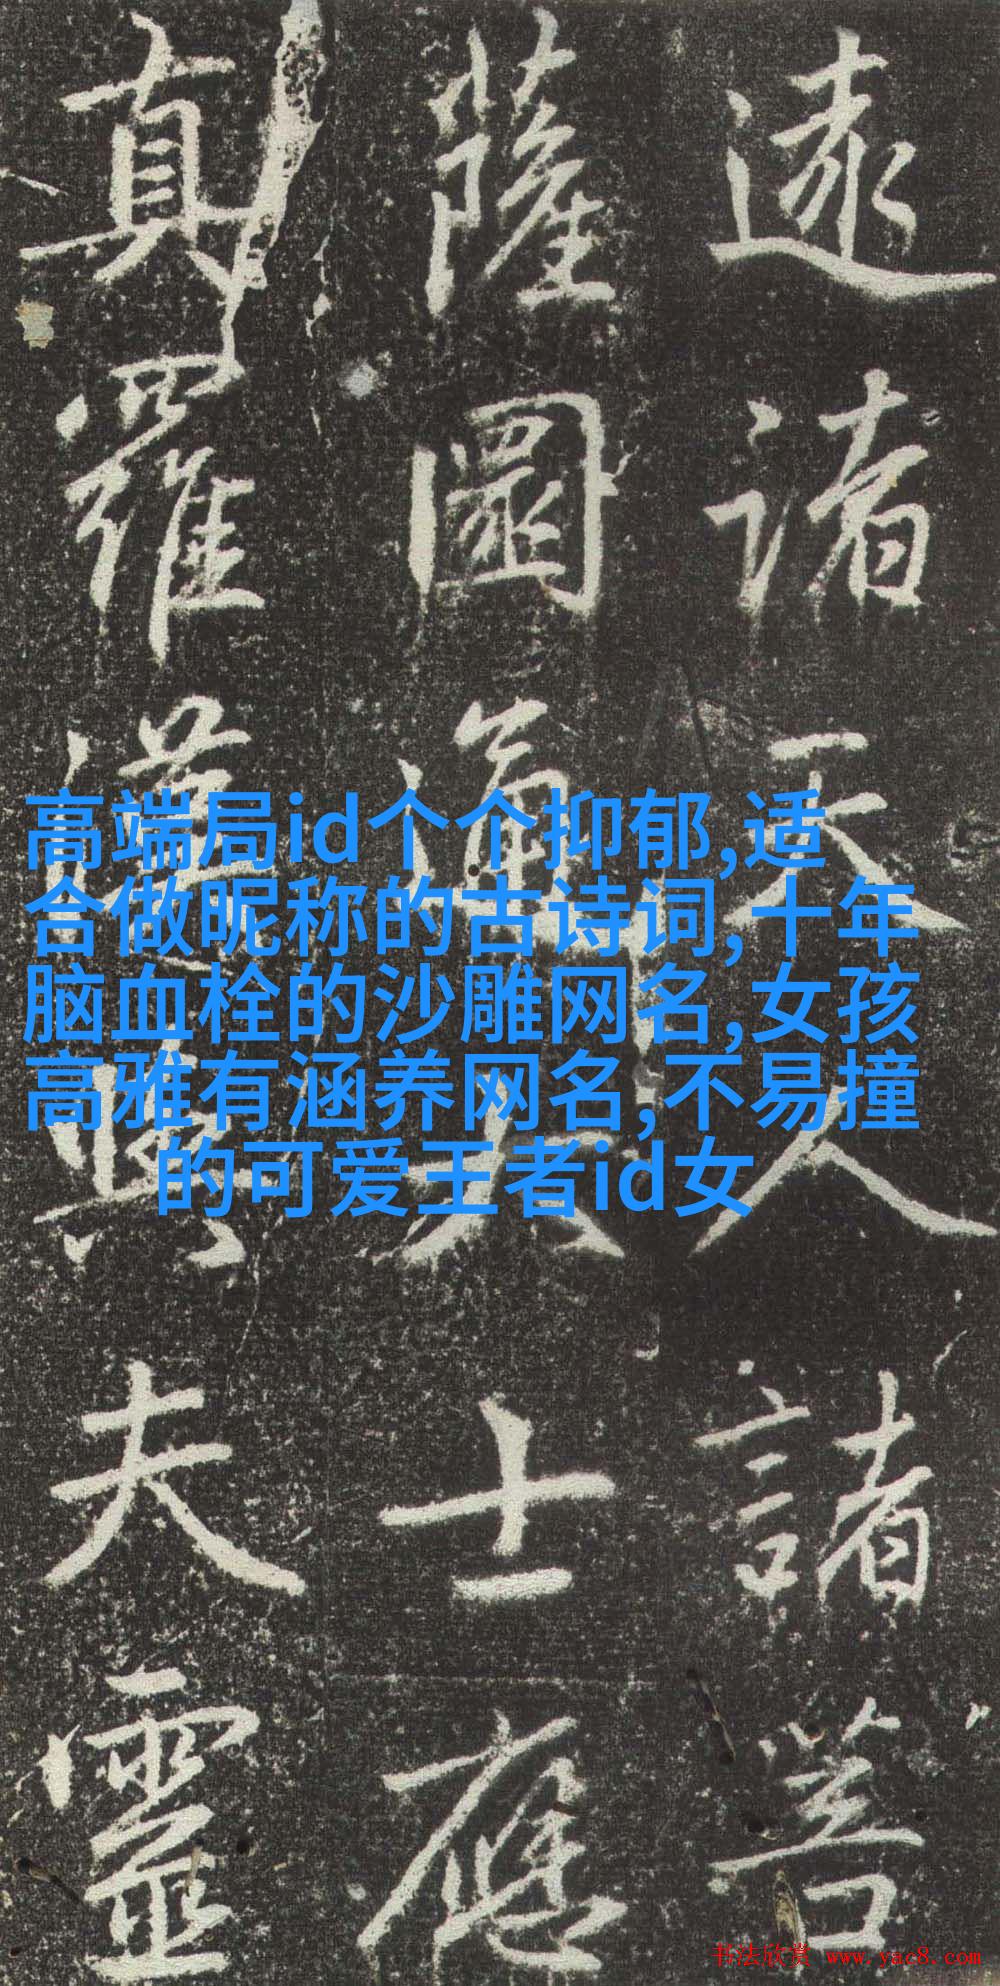 逮諸天人諸菩
薩圓通大士應
真羅漢與夫靈
高端局id个个抑郁,适
合做昵称的古诗词,十年
脑血栓的沙雕网名,女孩
高雅有涵养网名,不易撞
的可爱王者id女
书法欣赏 www.yac8.com